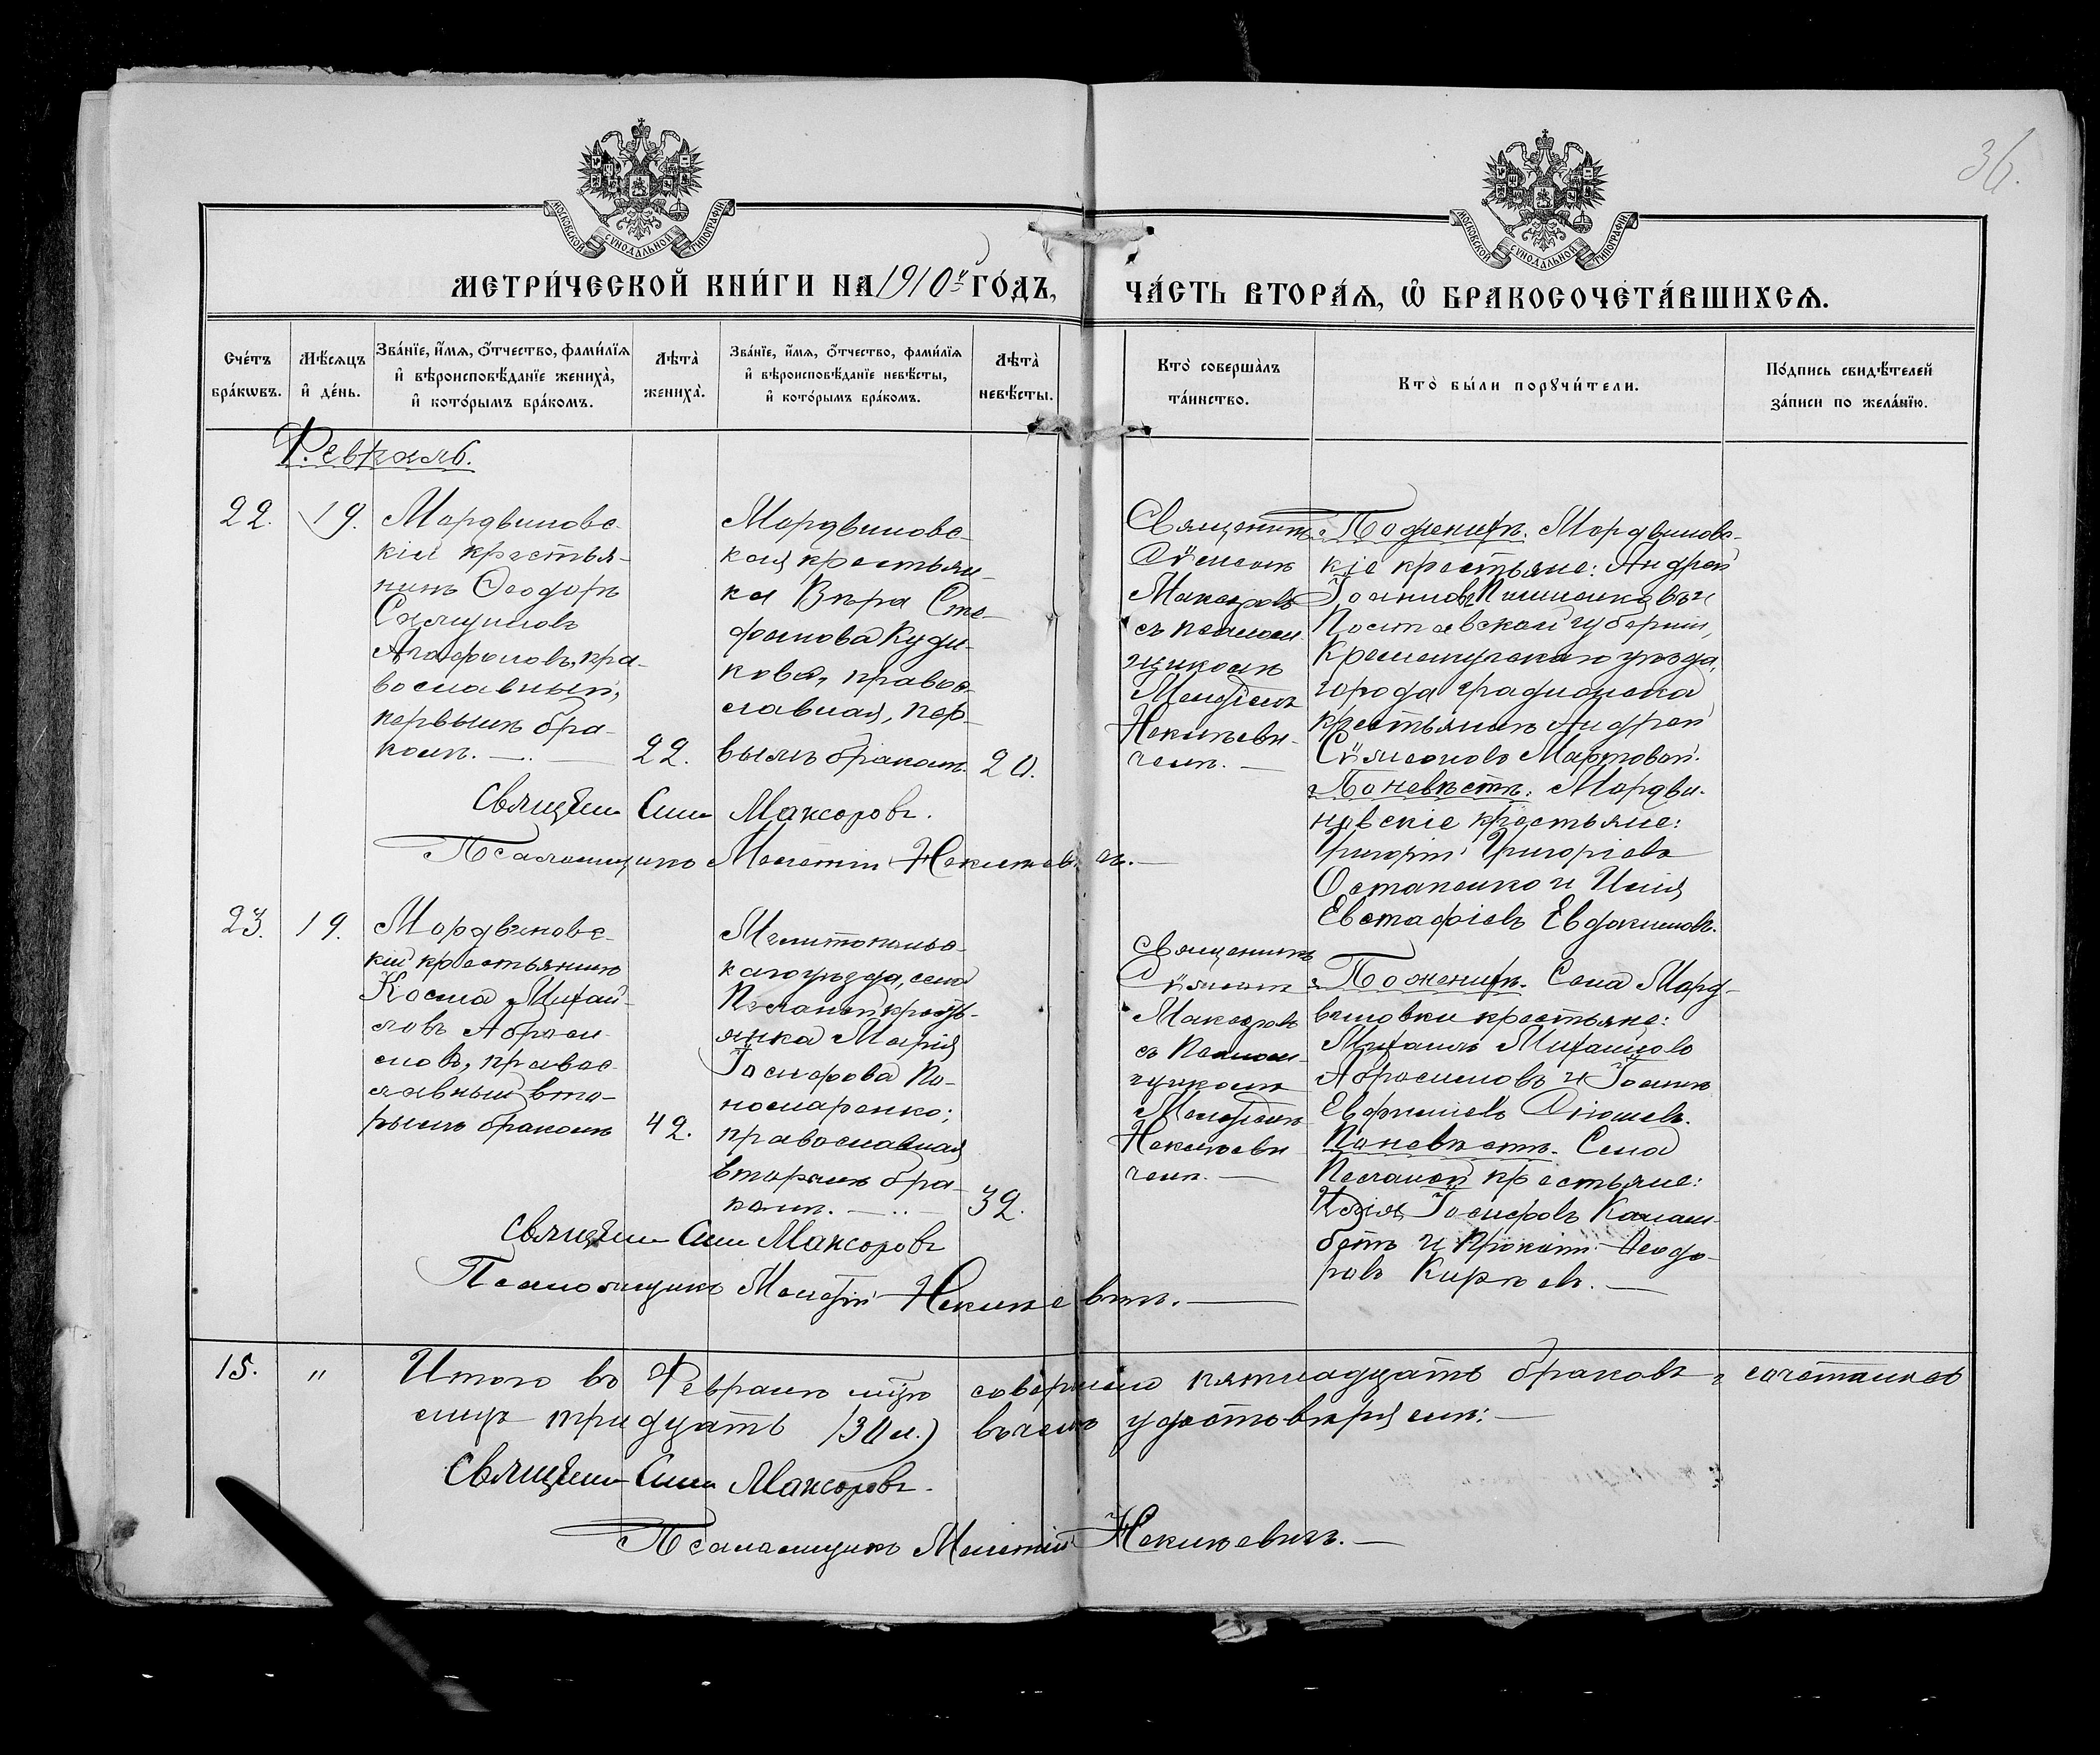 36.
МОСКОВСКОЙ СѴНОДАЛЬНОЙ ТИПОГРАФІИ
МОСКОВСКОЙ СѴНОДАЛЬНОЙ ТИПОГРАФІИ
МЕТРИ́ЧЕСКОЙ КНИ́ГИ НА 1910й ГО́ДЪ,
ЧА́СТЬ ВТОРА́Ѧ, Ѽ БРАКОСОЧЕТА́ВШИХСѦ.
Сче́тъ бра́кѡвъ.
Мѣ́сяцъ и҆ де́нь.
Зва́нїе, и҆́мѧ, ѻ҆́тчество, фами́лїѧ
и҆ вѣроисповѣ́данїе жениха̀,
и҆ кото́рымъ бра́комъ.
Лѣта̀ жениха̀.
Зва́нїе, и҆́мѧ, ѻ҆́тчество, фами́лїѧ
и҆ вѣроисповѣ́данїе невѣ́сты,
и҆ кото́рымъ бра́комъ.
Лѣта̀ невѣ́сты.
Кто̀ соверша́лъ та́инство.
Кто̀ бы́ли порꙋчи́тели.
По́дпись свидѣ́телей
за́писи по жела́нїю.
Февраль.
22.
19.
Мордвиновс-
кій крестья-
нинъ Ѳеодоръ
Агафоновъ, пра-
вославный,
первымъ бра-
комъ.
22.
Мордвиновс-
кая крестьян-
ка Вѣра Сте-
фанова Куди-
нова, правос-
лавная, пер-
вымъ бракомъ.
20.
Священникъ
Сѵмеонъ
Максоровъ
съ псалом-
щикомъ
Мелетіемъ
чемъ.
По женихѣ. Мордвиновс-
кіе крестьяне: Андрей
Іоанновъ и
Полтавской губерніи,
Кременчугскаго уѣзда,
города Градижска
крестьянинъ Андрей
Сѵмеоновъ Мартовой.
По невѣстѣ: Мордви-
новскіе крестьяне:
Григорій Григоріевъ
Остапенко и Илія
Евстафіевъ Евдокимовъ.
Священ Сим Максоровъ.
Псаломщикъ Мелетій
23.
19.
Мордвиновс-
кій крестьянинъ
Косма Михай-
ловъ Аброси-
мовъ, правос-
лавный вто-
рымъ бракомъ
42.
Мелитопольс-
каго уѣзда, села
Песчаной кресть-
янка Марія
Іосифова По-
номаренко;
православная
вторымъ бра-
комъ.
39.
Священникъ
Сѵмеонъ
Максоровъ
съ Псалом-
щикомъ
Мелетіемъ
чемъ.
По женихѣ. Села Морд-
виновки крестьяне:
Михаилъ Михайловъ
Абросимовъ и Іоаннъ
По невѣстѣ. Села
Песчаной крестьяне:
Илія Іосифовъ
и Ѳеодо-
ровъ
Священ Сим Максоровъ
Псаломщикъ Мелетій
15.
"
Итого въ Февралѣ мцѣ совершено пятнадцать браковъ, сочетались
лицъ тридцать (30 л.) въ чемъ удостовѣряемъ:
Священ Сим Максоровъ.
Псаломщикъ Мелетій